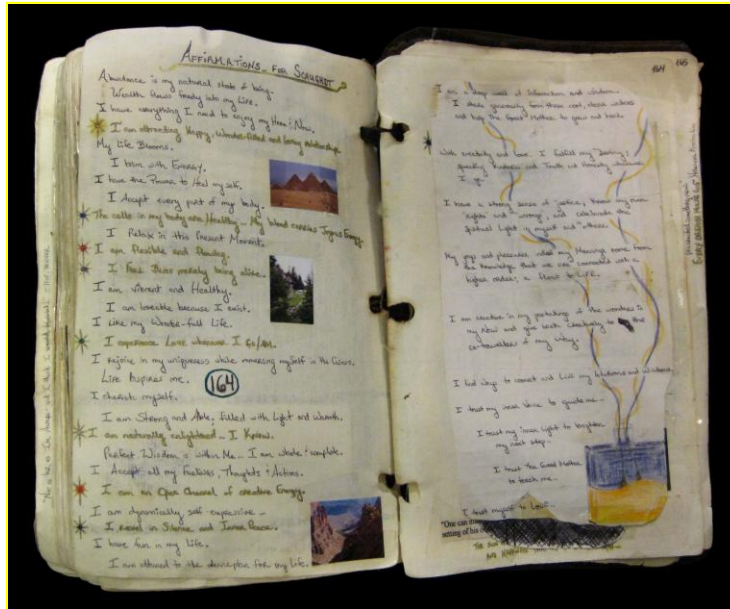 AFFIRMATIONS - FOR
Abundance is my natural state of being.
Wealth flows freely into my life.
I have everything I need to enjoy my Here & Now.
I am attracting Happy, Wonder-filled and loving relationships.
My Life Blooms.
I burn with Energy.
I have the Power to Heal myself.
I Accept every part of my body.
The cells in my body are Healthy - My blood carries Joyous Energy.
I Relax in this Present Moment.
I am Flexible and Flowing.
I Feel Bliss merely being alive.
I am vibrant and Healthy.
I am loveable because I exist.
I Like my Wonder-full Life.
I experience Love wherever I Go/AM.
I rejoice in my uniqueness while immersing myself in the
Life Inspires me.
164
I cherish myself.
I am Strong and Able; filled with Light and Warmth.
I am naturally enlightened - I Know.
Perfect Wisdom is within Me - I am whole & complete.
I Accept all my Feelings, Thoughts & Actions.
I am an Open Channel of creative Energy.
I am dynamically self-expressive -
I revel in Silence and Inner Peace.
I have fun in my life.
I am attuned to the for my Life.
164 165
I am a deep well of Information and Wisdom.
I share generously from these cool, clear waters
and help the Great Mother to grow and heal.
With creativity and Love I fulfill my Destiny;
speaking Kindness and Truth
I go.
I have a strong sense of justice, know my own
"rights" and "wrongs", and celebrate the
Spiritual Light in myself and others.
My joys and pleasures
the knowledge that we are connected with a
higher order; a flow to Life.
I am creative in my
my Now and give back creatively to the
co-travellers of my
I find ways to connect and Live my
I trust my inner Voice to guide me -
I trust my inner Light to brighten
my next step -
I trust the Good Mother
to teach me -
I trust myself to Love -
"One can
setting of his